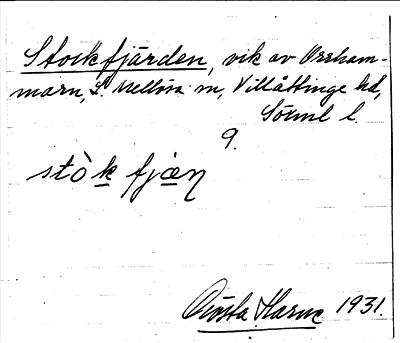 Stockfjärden, vik av Orrham-
marn, L. Mellösa sn, Villåttinge hd,
Söml l.
9.
stò̀k fjæɳ
Gösta Harne 1931.